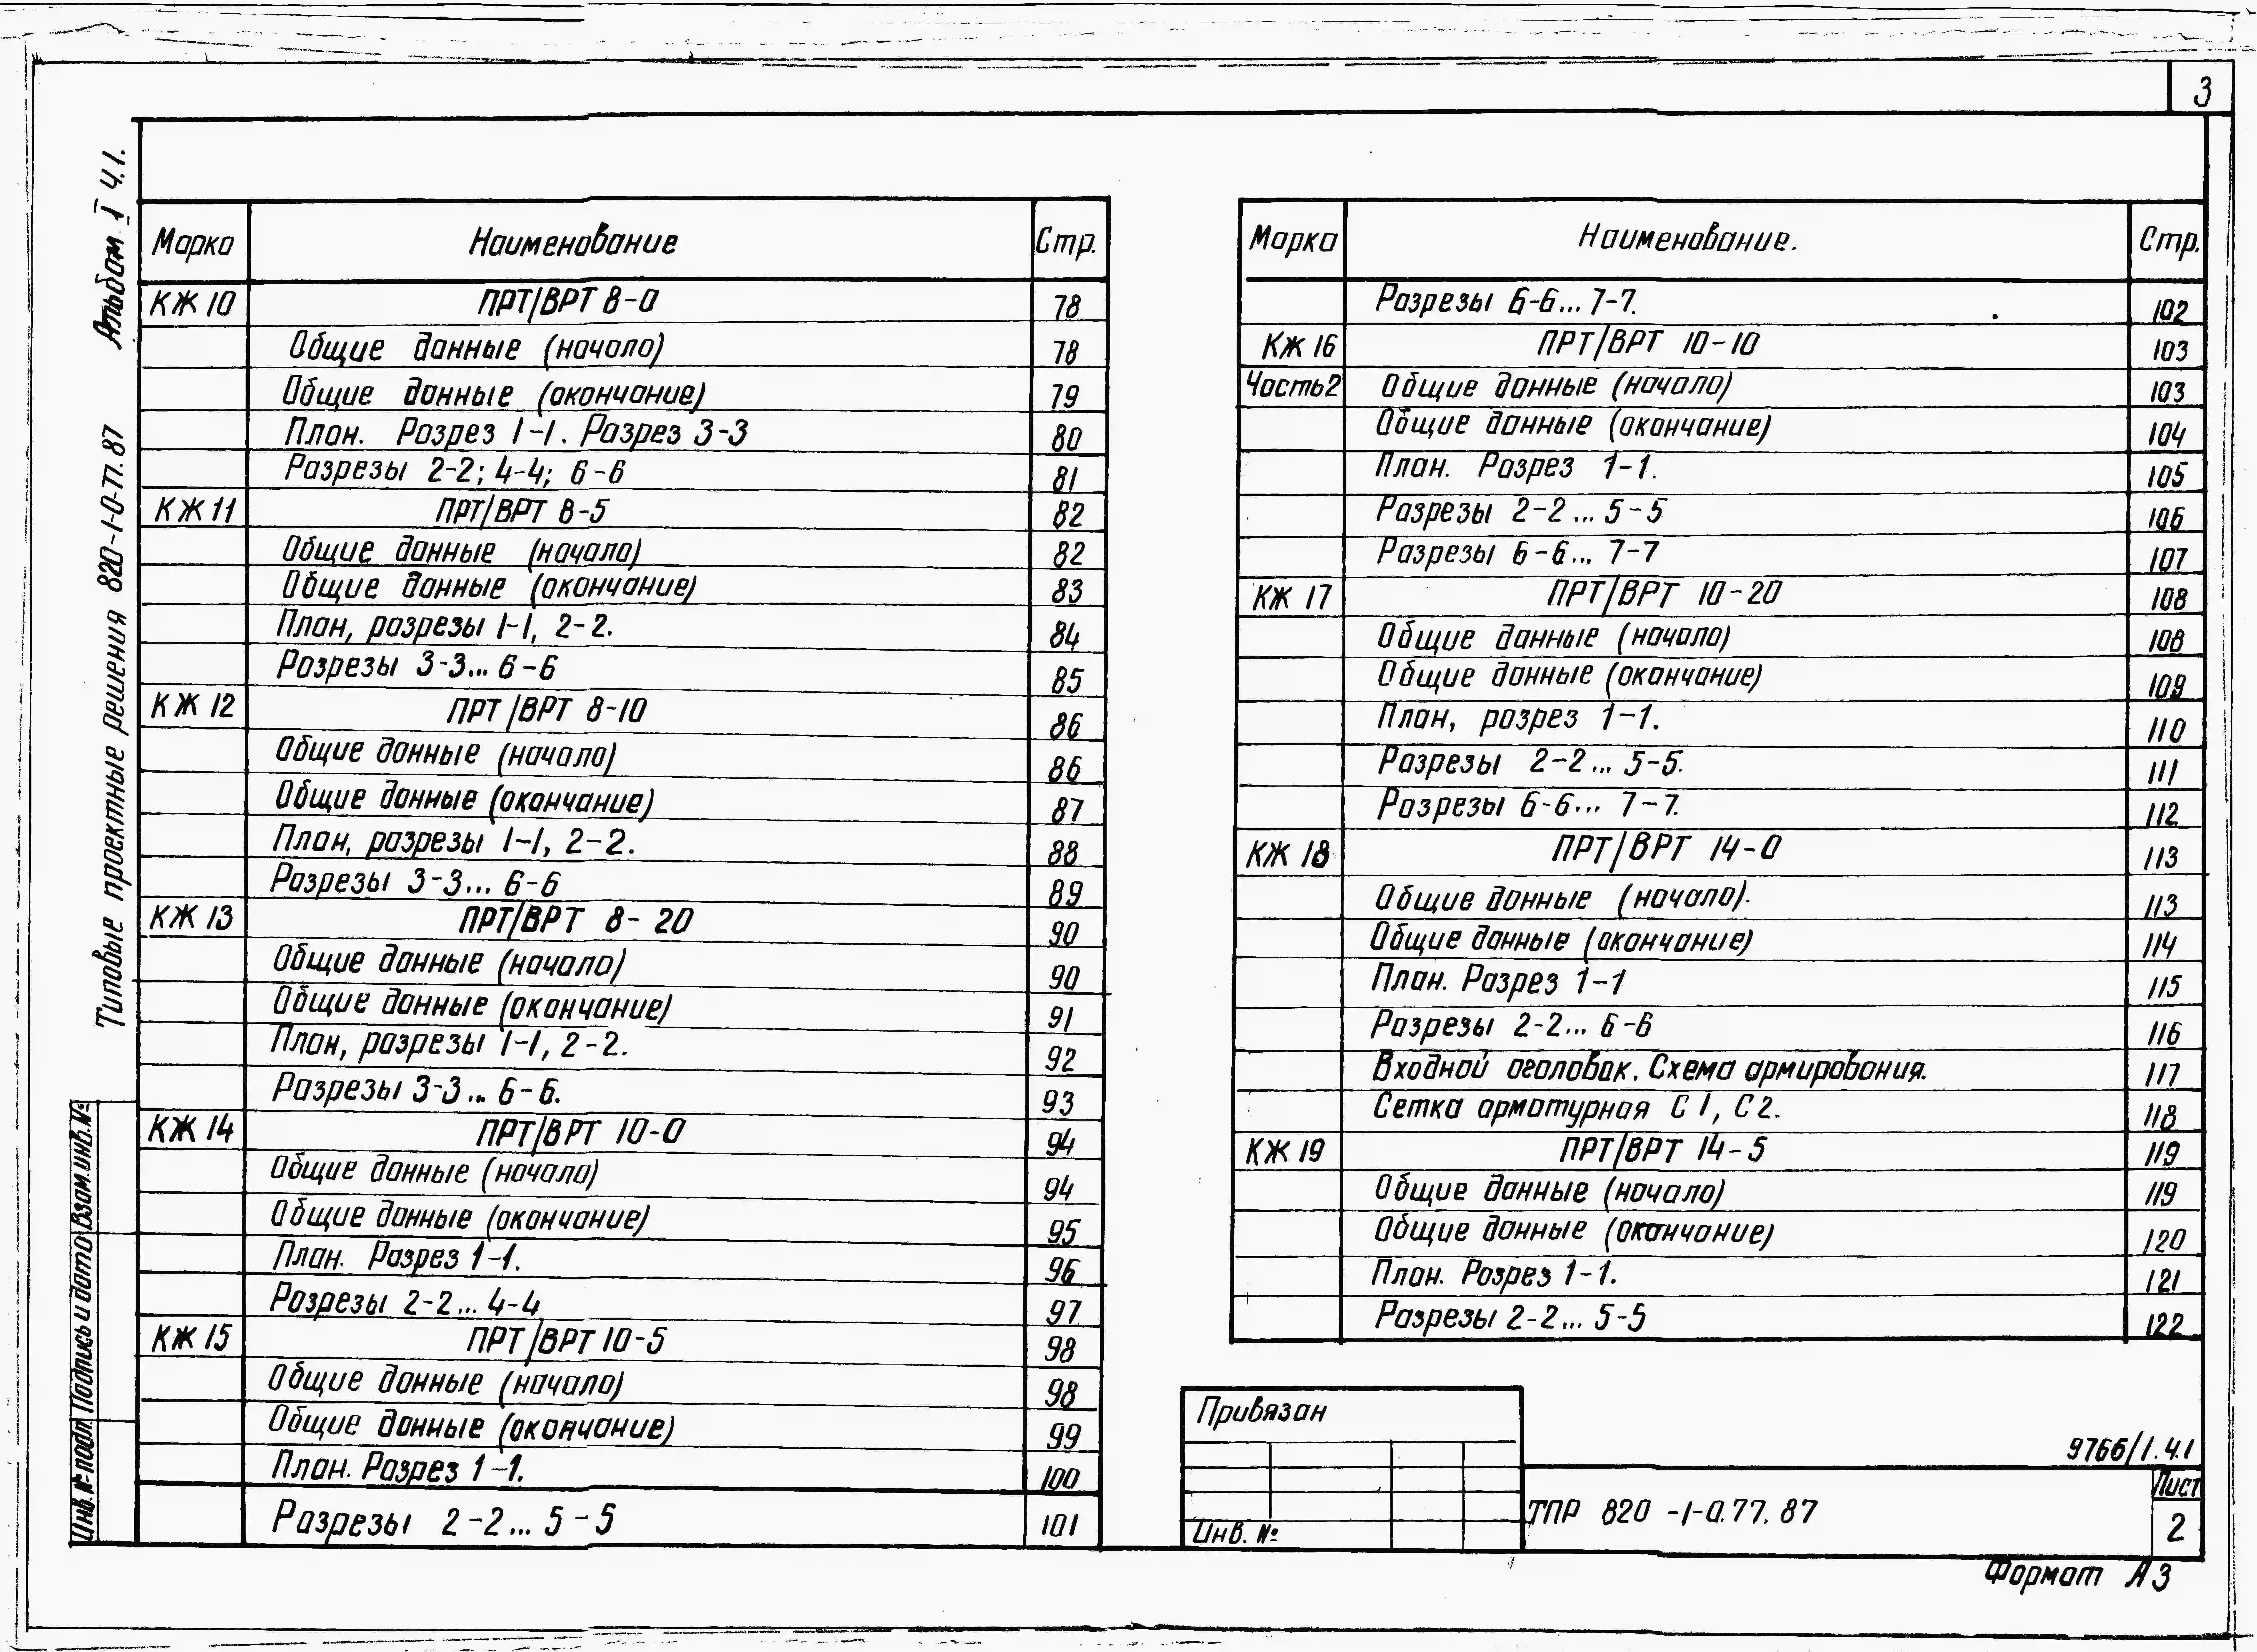 3
Альбом I Ч.1.
Типовые проектные решения 820-1-0-77.87
Взам.инв.№
Подпись и дата
Инв.№ подл.
Марка Наименование Стр.
КЖ 10 ПРТ/ВРТ 8-0 78
Общие данные (начало) 78
Общие данные (окончание) 79
План. Разрез 1-1. Разрез 3-3 80
Разрезы 2-2; 4-4; 6-6 81
КЖ 11 ПРТ/ВРТ 8-5 82
Общие данные (начало) 82
Общие данные (окончание) 83
План, разрезы 1-1, 2-2. 84
Разрезы 3-3... 6-6 85
КЖ 12 ПРТ/ВРТ 8-10 86
Общие данные (начало) 86
Общие данные (окончание) 87
План, разрезы 1-1, 2-2. 88
Разрезы 3-3... 6-6 89
КЖ 13 ПРТ/ВРТ 8-20 90
Общие данные (начало) 90
Общие данные (окончание) 91
План, разрезы 1-1, 2-2. 92
Разрезы 3-3... 6-6. 93
КЖ 14 ПРТ/ВРТ 10-0 94
Общие данные (начало) 94
Общие данные (окончание) 95
План. Разрез 1-1. 96
Разрезы 2-2... 4-4 97
КЖ 15 ПРТ/ВРТ 10-5 98
Общие данные (начало) 98
Общие данные (окончание) 99
План. Разрез 1-1. 100
Разрезы 2-2... 5-5 101
Марка Наименование. Стр.
Разрезы 6-6... 7-7. 102
КЖ 16 ПРТ/ВРТ 10-10 103
Часть2 Общие данные (начало) 103
Общие данные (окончание) 104
План. Разрез 1-1. 105
Разрезы 2-2... 5-5 106
Разрезы 6-6... 7-7 107
КЖ 17 ПРТ/ВРТ 10-20 108
Общие данные (начало) 108
Общие данные (окончание) 109
План, разрез 1-1. 110
Разрезы 2-2... 5-5. 111
Разрезы 6-6... 7-7. 112
КЖ 18 ПРТ/ВРТ 14-0 113
Общие данные (начало). 113
Общие данные (окончание) 114
План. Разрез 1-1 115
Разрезы 2-2... 6-6 116
Входной оголовок. Схема армирования. 117
Сетка арматурная С1, С2. 118
КЖ 19 ПРТ/ВРТ 14-5 119
Общие данные (начало) 119
Общие данные (окончание) 120
План. Разрез 1-1. 121
Разрезы 2-2... 5-5 122
Привязан
Инв. №
9766/1.Ч.1
ТПР 820-1-0.77.87
Лист
2
Формат А3